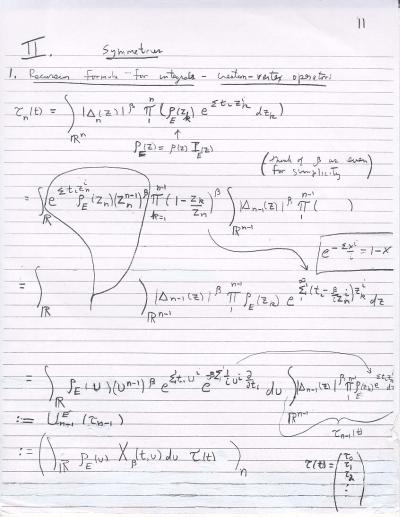 11
II. Symmetries
1. Recursion formula for integrals - Creation-vertex operators
τ_n(t) = ∫_{ℝ^n} |Δ_n(z)|^β ∏_1^n (ρ_E(z_k) e^{Σ t_i z_k^i} dz_k)
↑
ρ_E(z) = ρ(z) I_E(z)
(think of β as even
for simplicity)
= ∫_ℝ e^{Σ t_i z_n^i} ρ_E(z_n) (z_n^{n-1})^β ∏_{k=1}^{n-1} (1 - z_k/z_n)^β ∫_{ℝ^{n-1}} |Δ_{n-1}(z)|^β ∏_1^{n-1} ( )
e^{-Σ x^i/i} = 1-x
= ∫_ℝ ∫_{ℝ^{n-1}} |Δ_{n-1}(z)|^β ∏_1^{n-1} ρ_E(z_k) e^{Σ_1^∞ (t_i - β/(i z_n^i)) z_k^i} dz
= ∫_ℝ ρ_E(u) (u^{n-1})^β e^{Σ t_i u^i} e^{-β Σ 1/i u^{-i} ∂/∂t_i} du ∫_{ℝ^{n-1}} |Δ_{n-1}(z)|^β ∏_1^{n-1} ρ_E(z_k) e^{Σ t_i z_k^i} dz
τ_{n-1}(t)
:= U_{n-1}^E (τ_{n-1})
:= (∫_ℝ ρ_E(u) X_β(t,u) du τ(t))_n
τ(t) = (τ_0 τ_1 τ_2 ⋮)